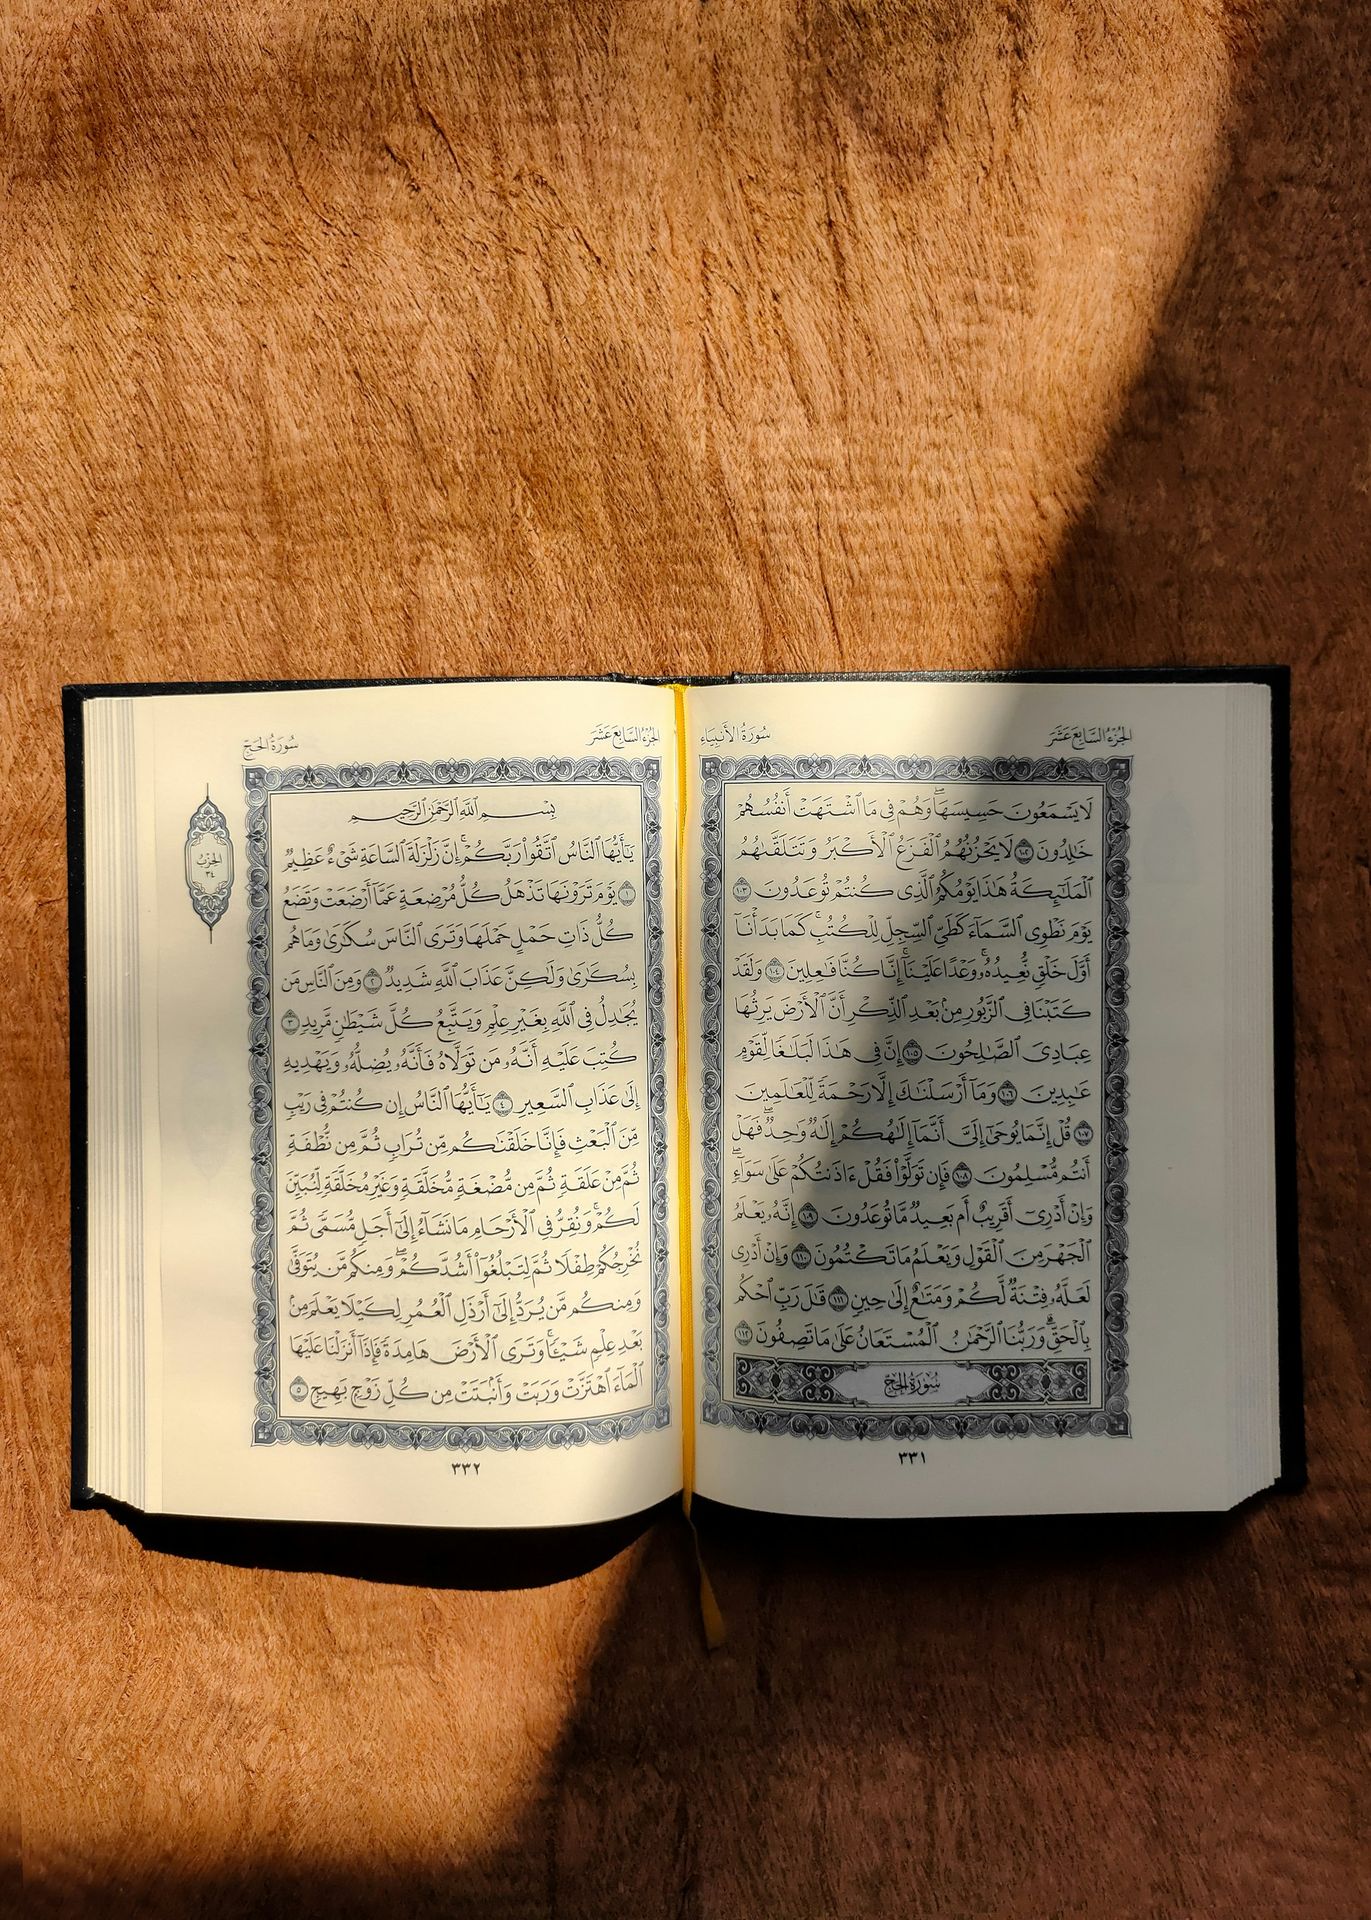 الجُزءُ السَّابِعَ عَشَرَ
سُورَةُ الأَنبِيَاءِ
لَا يَسْمَعُونَ حَسِيسَهَاۖ وَهُمْ فِي مَا ٱشْتَهَتْ أَنفُسُهُمْ
خَٰلِدُونَ ١٠٢ لَا يَحْزُنُهُمُ ٱلْفَزَعُ ٱلْأَكْبَرُ وَتَتَلَقَّىٰهُمُ
ٱلْمَلَٰٓئِكَةُ هَٰذَا يَوْمُكُمُ ٱلَّذِي كُنتُمْ تُوعَدُونَ ١٠٣
يَوْمَ نَطْوِي ٱلسَّمَآءَ كَطَيِّ ٱلسِّجِلِّ لِلْكُتُبِۚ كَمَا بَدَأْنَآ
أَوَّلَ خَلْقٍ نُّعِيدُهُۥۚ وَعْدًا عَلَيْنَآۚ إِنَّا كُنَّا فَٰعِلِينَ ١٠٤ وَلَقَدْ
كَتَبْنَا فِي ٱلزَّبُورِ مِنۢ بَعْدِ ٱلذِّكْرِ أَنَّ ٱلْأَرْضَ يَرِثُهَا
عِبَادِيَ ٱلصَّٰلِحُونَ ١٠٥ إِنَّ فِي هَٰذَا لَبَلَٰغًا لِّقَوْمٍ
عَٰبِدِينَ ١٠٦ وَمَآ أَرْسَلْنَٰكَ إِلَّا رَحْمَةً لِّلْعَٰلَمِينَ
١٠٧ قُلْ إِنَّمَا يُوحَىٰٓ إِلَيَّ أَنَّمَآ إِلَٰهُكُمْ إِلَٰهٌ وَٰحِدٌۖ فَهَلْ
أَنتُم مُّسْلِمُونَ ١٠٨ فَإِن تَوَلَّوْا۟ فَقُلْ ءَاذَنتُكُمْ عَلَىٰ سَوَآءٍۖ
وَإِنْ أَدْرِيٓ أَقَرِيبٌ أَم بَعِيدٌ مَّا تُوعَدُونَ ١٠٩ إِنَّهُۥ يَعْلَمُ
ٱلْجَهْرَ مِنَ ٱلْقَوْلِ وَيَعْلَمُ مَا تَكْتُمُونَ ١١٠ وَإِنْ أَدْرِي
لَعَلَّهُۥ فِتْنَةٌ لَّكُمْ وَمَتَٰعٌ إِلَىٰ حِينٍ ١١١ قَٰلَ رَبِّ ٱحْكُم
بِٱلْحَقِّۗ وَرَبُّنَا ٱلرَّحْمَٰنُ ٱلْمُسْتَعَانُ عَلَىٰ مَا تَصِفُونَ ١١٢
سُورَةُ الحَجِّ
٣٣١
الجُزءُ السَّابِعَ عَشَرَ
سُورَةُ الحَجِّ
بِسْمِ ٱللَّهِ ٱلرَّحْمَٰنِ ٱلرَّحِيمِ
يَٰٓأَيُّهَا ٱلنَّاسُ ٱتَّقُوا۟ رَبَّكُمْۚ إِنَّ زَلْزَلَةَ ٱلسَّاعَةِ شَيْءٌ عَظِيمٌ
١ يَوْمَ تَرَوْنَهَا تَذْهَلُ كُلُّ مُرْضِعَةٍ عَمَّآ أَرْضَعَتْ وَتَضَعُ
كُلُّ ذَاتِ حَمْلٍ حَمْلَهَا وَتَرَى ٱلنَّاسَ سُكَٰرَىٰ وَمَا هُم
بِسُكَٰرَىٰ وَلَٰكِنَّ عَذَابَ ٱللَّهِ شَدِيدٌ ٢ وَمِنَ ٱلنَّاسِ مَن
يُجَٰدِلُ فِي ٱللَّهِ بِغَيْرِ عِلْمٍ وَيَتَّبِعُ كُلَّ شَيْطَٰنٍ مَّرِيدٍ ٣
كُتِبَ عَلَيْهِ أَنَّهُۥ مَن تَوَلَّاهُ فَأَنَّهُۥ يُضِلُّهُۥ وَيَهْدِيهِ
إِلَىٰ عَذَابِ ٱلسَّعِيرِ ٤ يَٰٓأَيُّهَا ٱلنَّاسُ إِن كُنتُمْ فِي رَيْبٍ
مِّنَ ٱلْبَعْثِ فَإِنَّا خَلَقْنَٰكُم مِّن تُرَابٍ ثُمَّ مِن نُّطْفَةٍ
ثُمَّ مِنْ عَلَقَةٍ ثُمَّ مِن مُّضْغَةٍ مُّخَلَّقَةٍ وَغَيْرِ مُخَلَّقَةٍ لِّنُبَيِّنَ
لَكُمْۚ وَنُقِرُّ فِي ٱلْأَرْحَامِ مَا نَشَآءُ إِلَىٰٓ أَجَلٍ مُّسَمًّى ثُمَّ
نُخْرِجُكُمْ طِفْلًا ثُمَّ لِتَبْلُغُوٓا۟ أَشُدَّكُمْۖ وَمِنكُم مَّن يُتَوَفَّىٰ
وَمِنكُم مَّن يُرَدُّ إِلَىٰٓ أَرْذَلِ ٱلْعُمُرِ لِكَيْلَا يَعْلَمَ مِنۢ
بَعْدِ عِلْمٍ شَيْـًٔاۚ وَتَرَى ٱلْأَرْضَ هَامِدَةً فَإِذَآ أَنزَلْنَا عَلَيْهَا
ٱلْمَآءَ ٱهْتَزَّتْ وَرَبَتْ وَأَنۢبَتَتْ مِن كُلِّ زَوْجٍۭ بَهِيجٍ ٥
الحِزْبُ
٣٤
٣٣٢